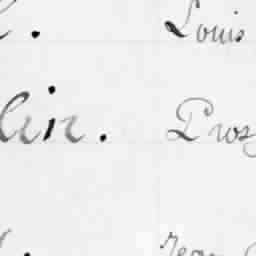 Louis
lin. Pros
Jean